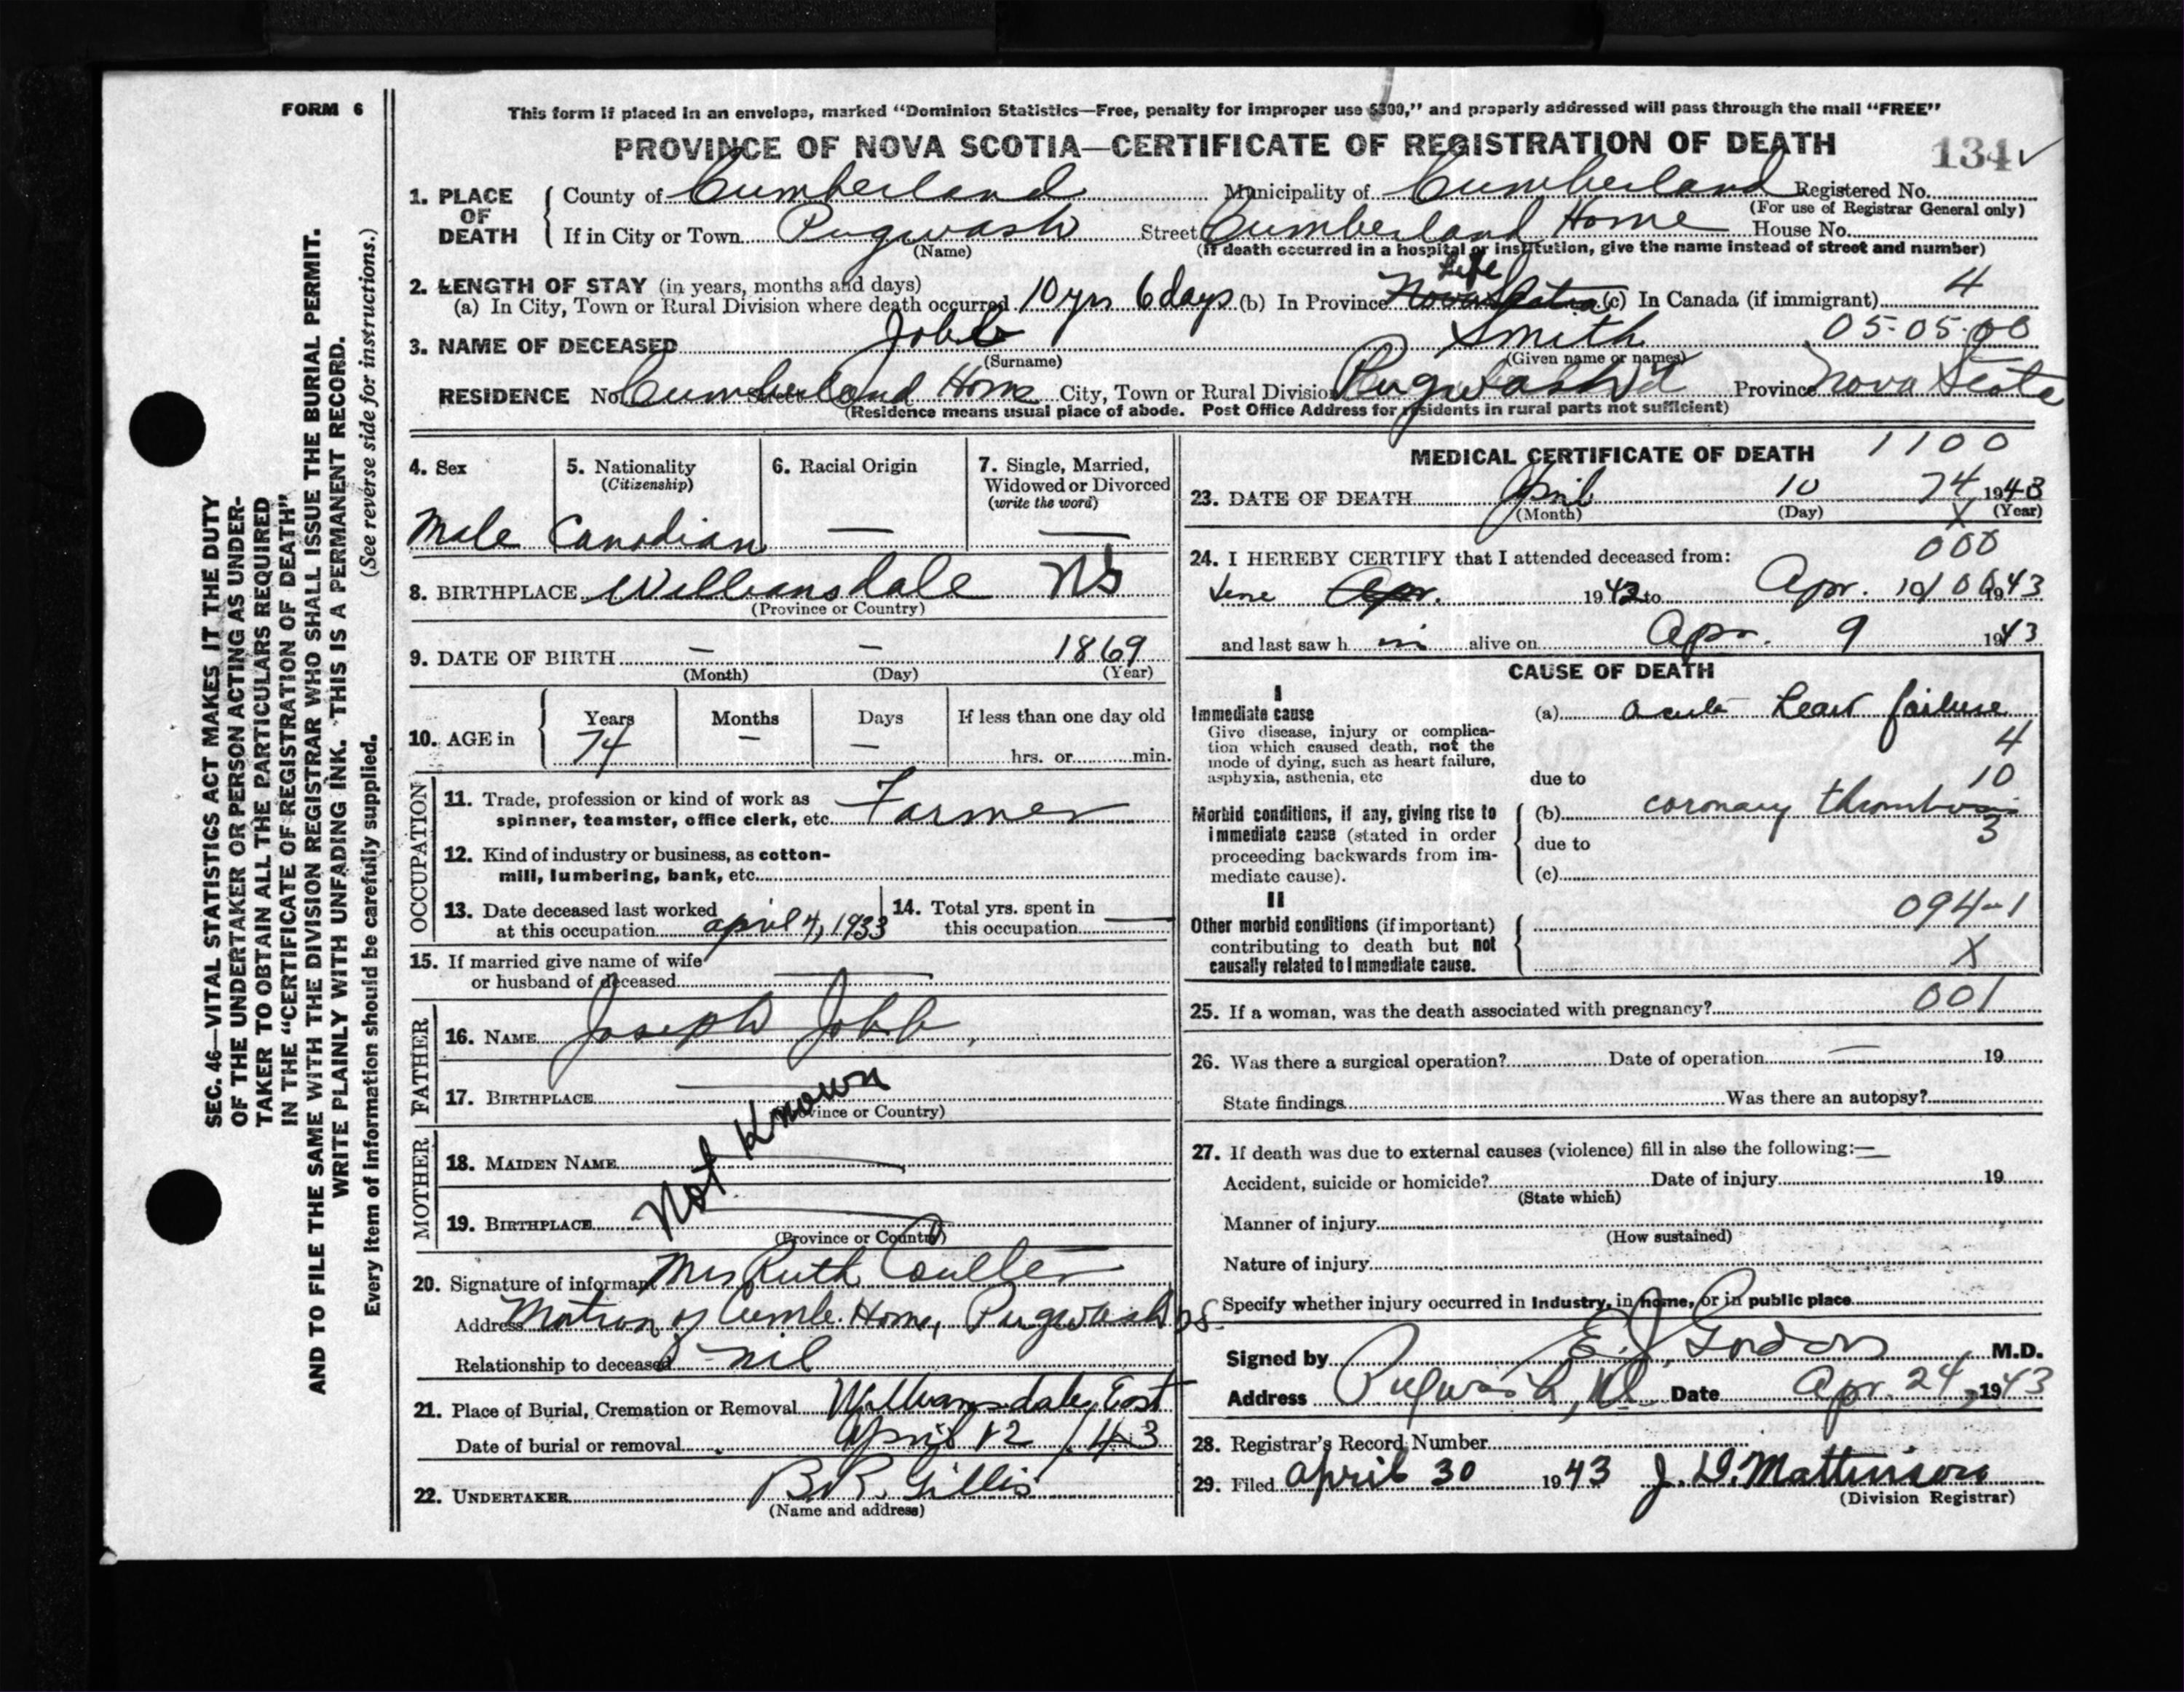 FORM 6
This form if placed in an envelope, marked "Dominion Statistics—Free, penalty for improper use $300," and properly addressed will pass through the mail "FREE"
PROVINCE OF NOVA SCOTIA—CERTIFICATE OF REGISTRATION OF DEATH
134 ✓
1. PLACE OF DEATH
County of Cumberland Municipality of Cumberland Registered No.
(For use of Registrar General only)
If in City or Town Pugwash Street Cumberland Home House No.
(Name) (If death occurred in a hospital or institution, give the name instead of street and number)
2. LENGTH OF STAY (in years, months and days)
Life
(a) In City, Town or Rural Division where death occurred 10 yrs 6 days (b) In Province Nova Scotia (c) In Canada (if immigrant) 4
3. NAME OF DECEASED Jobb Smith 05-05-00
(Surname) (Given name or names)
RESIDENCE No. Cumberland Home Street City, Town or Rural Division Pugwash Province Nova Scotia
(Residence means usual place of abode. Post Office Address for residents in rural parts not sufficient)
4. Sex
Male
5. Nationality
(Citizenship)
Canadian
6. Racial Origin
—
7. Single, Married, Widowed or Divorced
(write the word)
—
8. BIRTHPLACE Williamsdale NS
(Province or Country)
9. DATE OF BIRTH — — 1869
(Month) (Day) (Year)
10. AGE in
Years Months Days If less than one day old
74 — — hrs. or min.
OCCUPATION
11. Trade, profession or kind of work as
spinner, teamster, office clerk, etc. Farmer
12. Kind of industry or business, as cotton-
mill, lumbering, bank, etc.
13. Date deceased last worked
at this occupation April 4, 1933
14. Total yrs. spent in
this occupation —
15. If married give name of wife
or husband of deceased —
FATHER
16. NAME Joseph Jobb
17. BIRTHPLACE
(Province or Country)
Not Known
MOTHER
18. MAIDEN NAME
19. BIRTHPLACE
(Province or Country)
20. Signature of informant Mrs Ruth Coulter
Address Matron of Cumb. Home, Pugwash NS
Relationship to deceased nil
21. Place of Burial, Cremation or Removal Williamsdale, East
Date of burial or removal April 12 /43
22. UNDERTAKER B.R. Gillis
(Name and address)
MEDICAL CERTIFICATE OF DEATH 1100
23. DATE OF DEATH April 10 74 1943
(Month) (Day) X (Year)
000
24. I HEREBY CERTIFY that I attended deceased from:
Apr. 1942 to Apr. 10 1943
and last saw h im alive on Apr. 9 1943
CAUSE OF DEATH
I
Immediate cause
Give disease, injury or complica-
tion which caused death, not the
mode of dying, such as heart failure,
asphyxia, asthenia, etc
(a) acute heart failure
4
due to 10
Morbid conditions, if any, giving rise to
immediate cause (stated in order
proceeding backwards from im-
mediate cause).
(b) coronary thrombosis
due to 3
(c)
II
Other morbid conditions (if important)
contributing to death but not
causally related to immediate cause.
094-1
X
25. If a woman, was the death associated with pregnancy? 001
26. Was there a surgical operation? Date of operation — 19
State findings Was there an autopsy?
27. If death was due to external causes (violence) fill in also the following:—
Accident, suicide or homicide? Date of injury 19
(State which)
Manner of injury
(How sustained)
Nature of injury
Specify whether injury occurred in industry, in home, or in public place
Signed by E. J. Gordon M.D.
Address Pugwash, NS Date Apr. 24, 1943
28. Registrar's Record Number
29. Filed April 30 1943 J. D. Mattinson
(Division Registrar)
SEC. 46—VITAL STATISTICS ACT MAKES IT THE DUTY
OF THE UNDERTAKER OR PERSON ACTING AS UNDER-
TAKER TO OBTAIN ALL THE PARTICULARS REQUIRED
IN THE "CERTIFICATE OF REGISTRATION OF DEATH"
AND TO FILE THE SAME WITH THE DIVISION REGISTRAR WHO SHALL ISSUE THE BURIAL PERMIT.
WRITE PLAINLY WITH UNFADING INK. THIS IS A PERMANENT RECORD.
Every item of information should be carefully supplied. (See reverse side for instructions.)